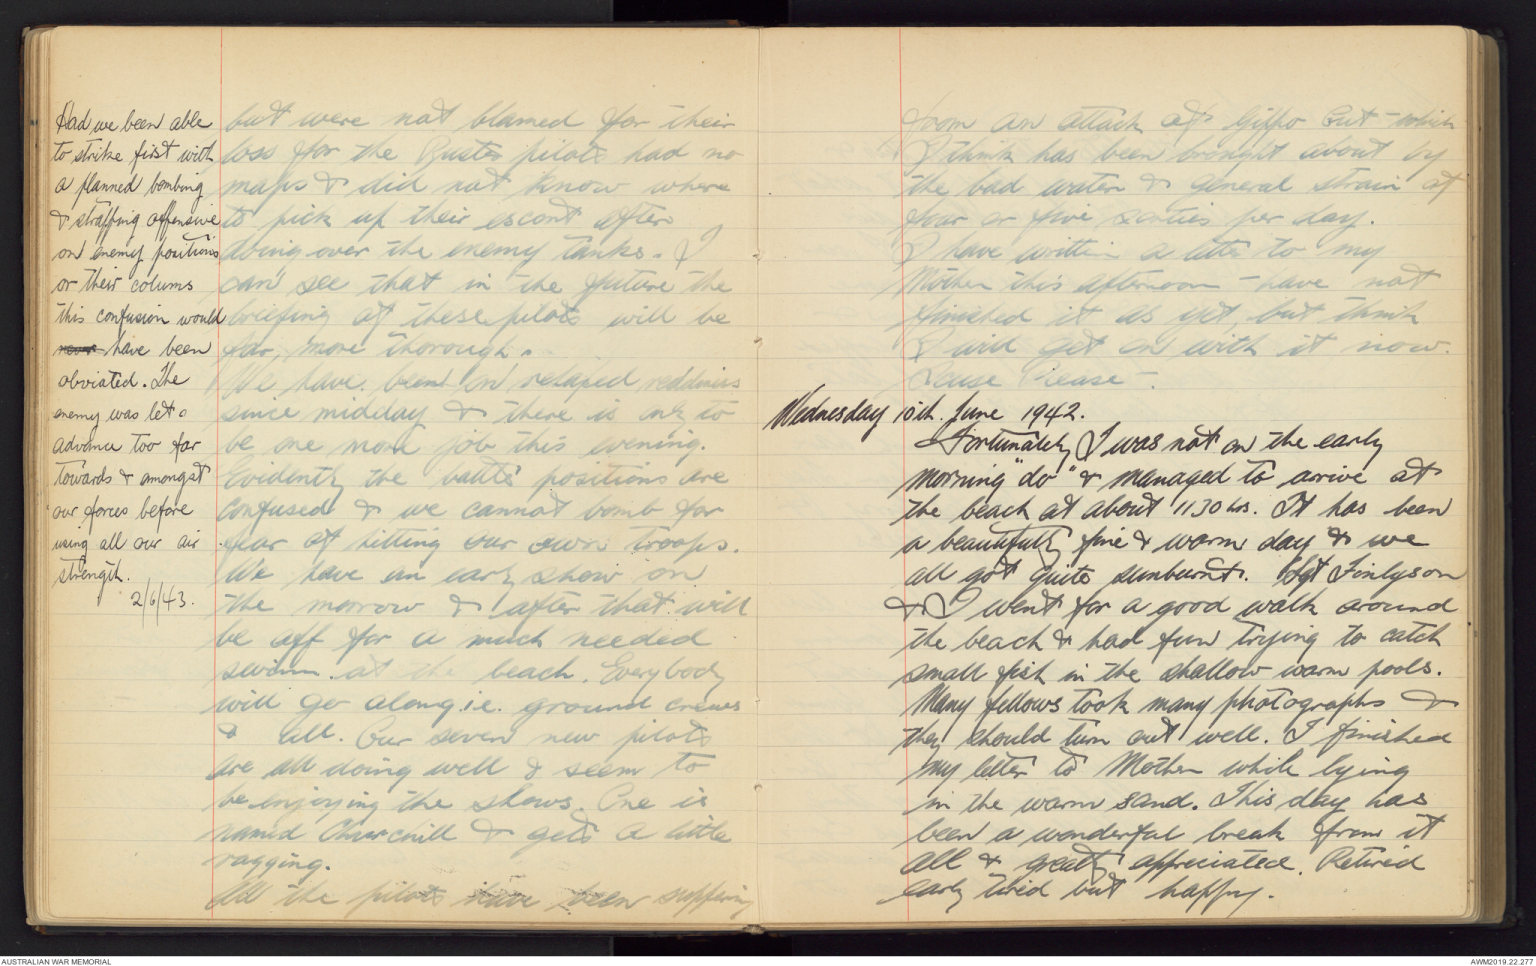 Had we been able
to strike first with
a planned bombing
& straffing offensive
on enemy positions
or their colums
this confusion would
never have been
obviated. The
enemy was let
advance too far
towards & amongst
our forces before
using all our air
strength.
2/6/43.
but were not blamed for their
loss for the Buster pilots had no
maps & did not know where
to pick up their escort after
doing over the enemy tanks. I
can see that in the future the
briefing of these pilots will be
far, more thorough.
We have been on relaxed rediness
since midday & there is only to
be one more job this evening.
Evidently the battle positions are
confused & we cannot bomb for
fear of hitting our own troops.
We have an early show on
the morrow & after that will
be off for a much needed
swim at the beach. Everybody
will go along i.e. ground crews
& all. Our seven new pilots
are all doing well & seem to
be enjoying the shows. One is
named Churchill & gets a little
ragging.
All the pilots have been suffering
from an attack of Gippo Gut - which
I think has been brought about by
the bad water & general strain of
four or five sorties per day.
I have written a letter to my
Mother this afternoon - have not
finished it as yet, but think
I will get on with it now.
Pease -.
Wednesday 10th. June 1942.
Fortunately I was not on the early
morning "do" & managed to arrive at
the beach at about 1130 hrs. It has been
a beautifully fine & warm day & we
all got quite sunburnt. Sgt Finlyson
& I went for a good walk around
the beach & had fun trying to catch
small fish in the shallow warm pools.
Many fellows took many photographs &
they should turn out well. I finished
my letter to Mother while lying
in the warm sand. This day has
been a wonderful break from it
all & greatly appreciated. Retired
early tired but happy.
AUSTRALIAN WAR MEMORIAL
AWM2019.22.277